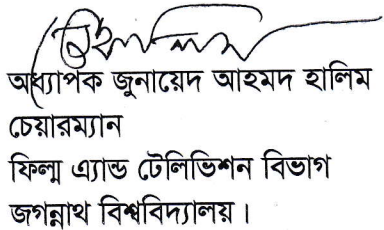 অধ্যাপক জুনায়েদ আহমদ হালিম
চেয়ারম্যান
ফিল্ম এ্যান্ড টেলিভিশন বিভাগ
জগন্নাথ বিশ্ববিদ্যালয়।